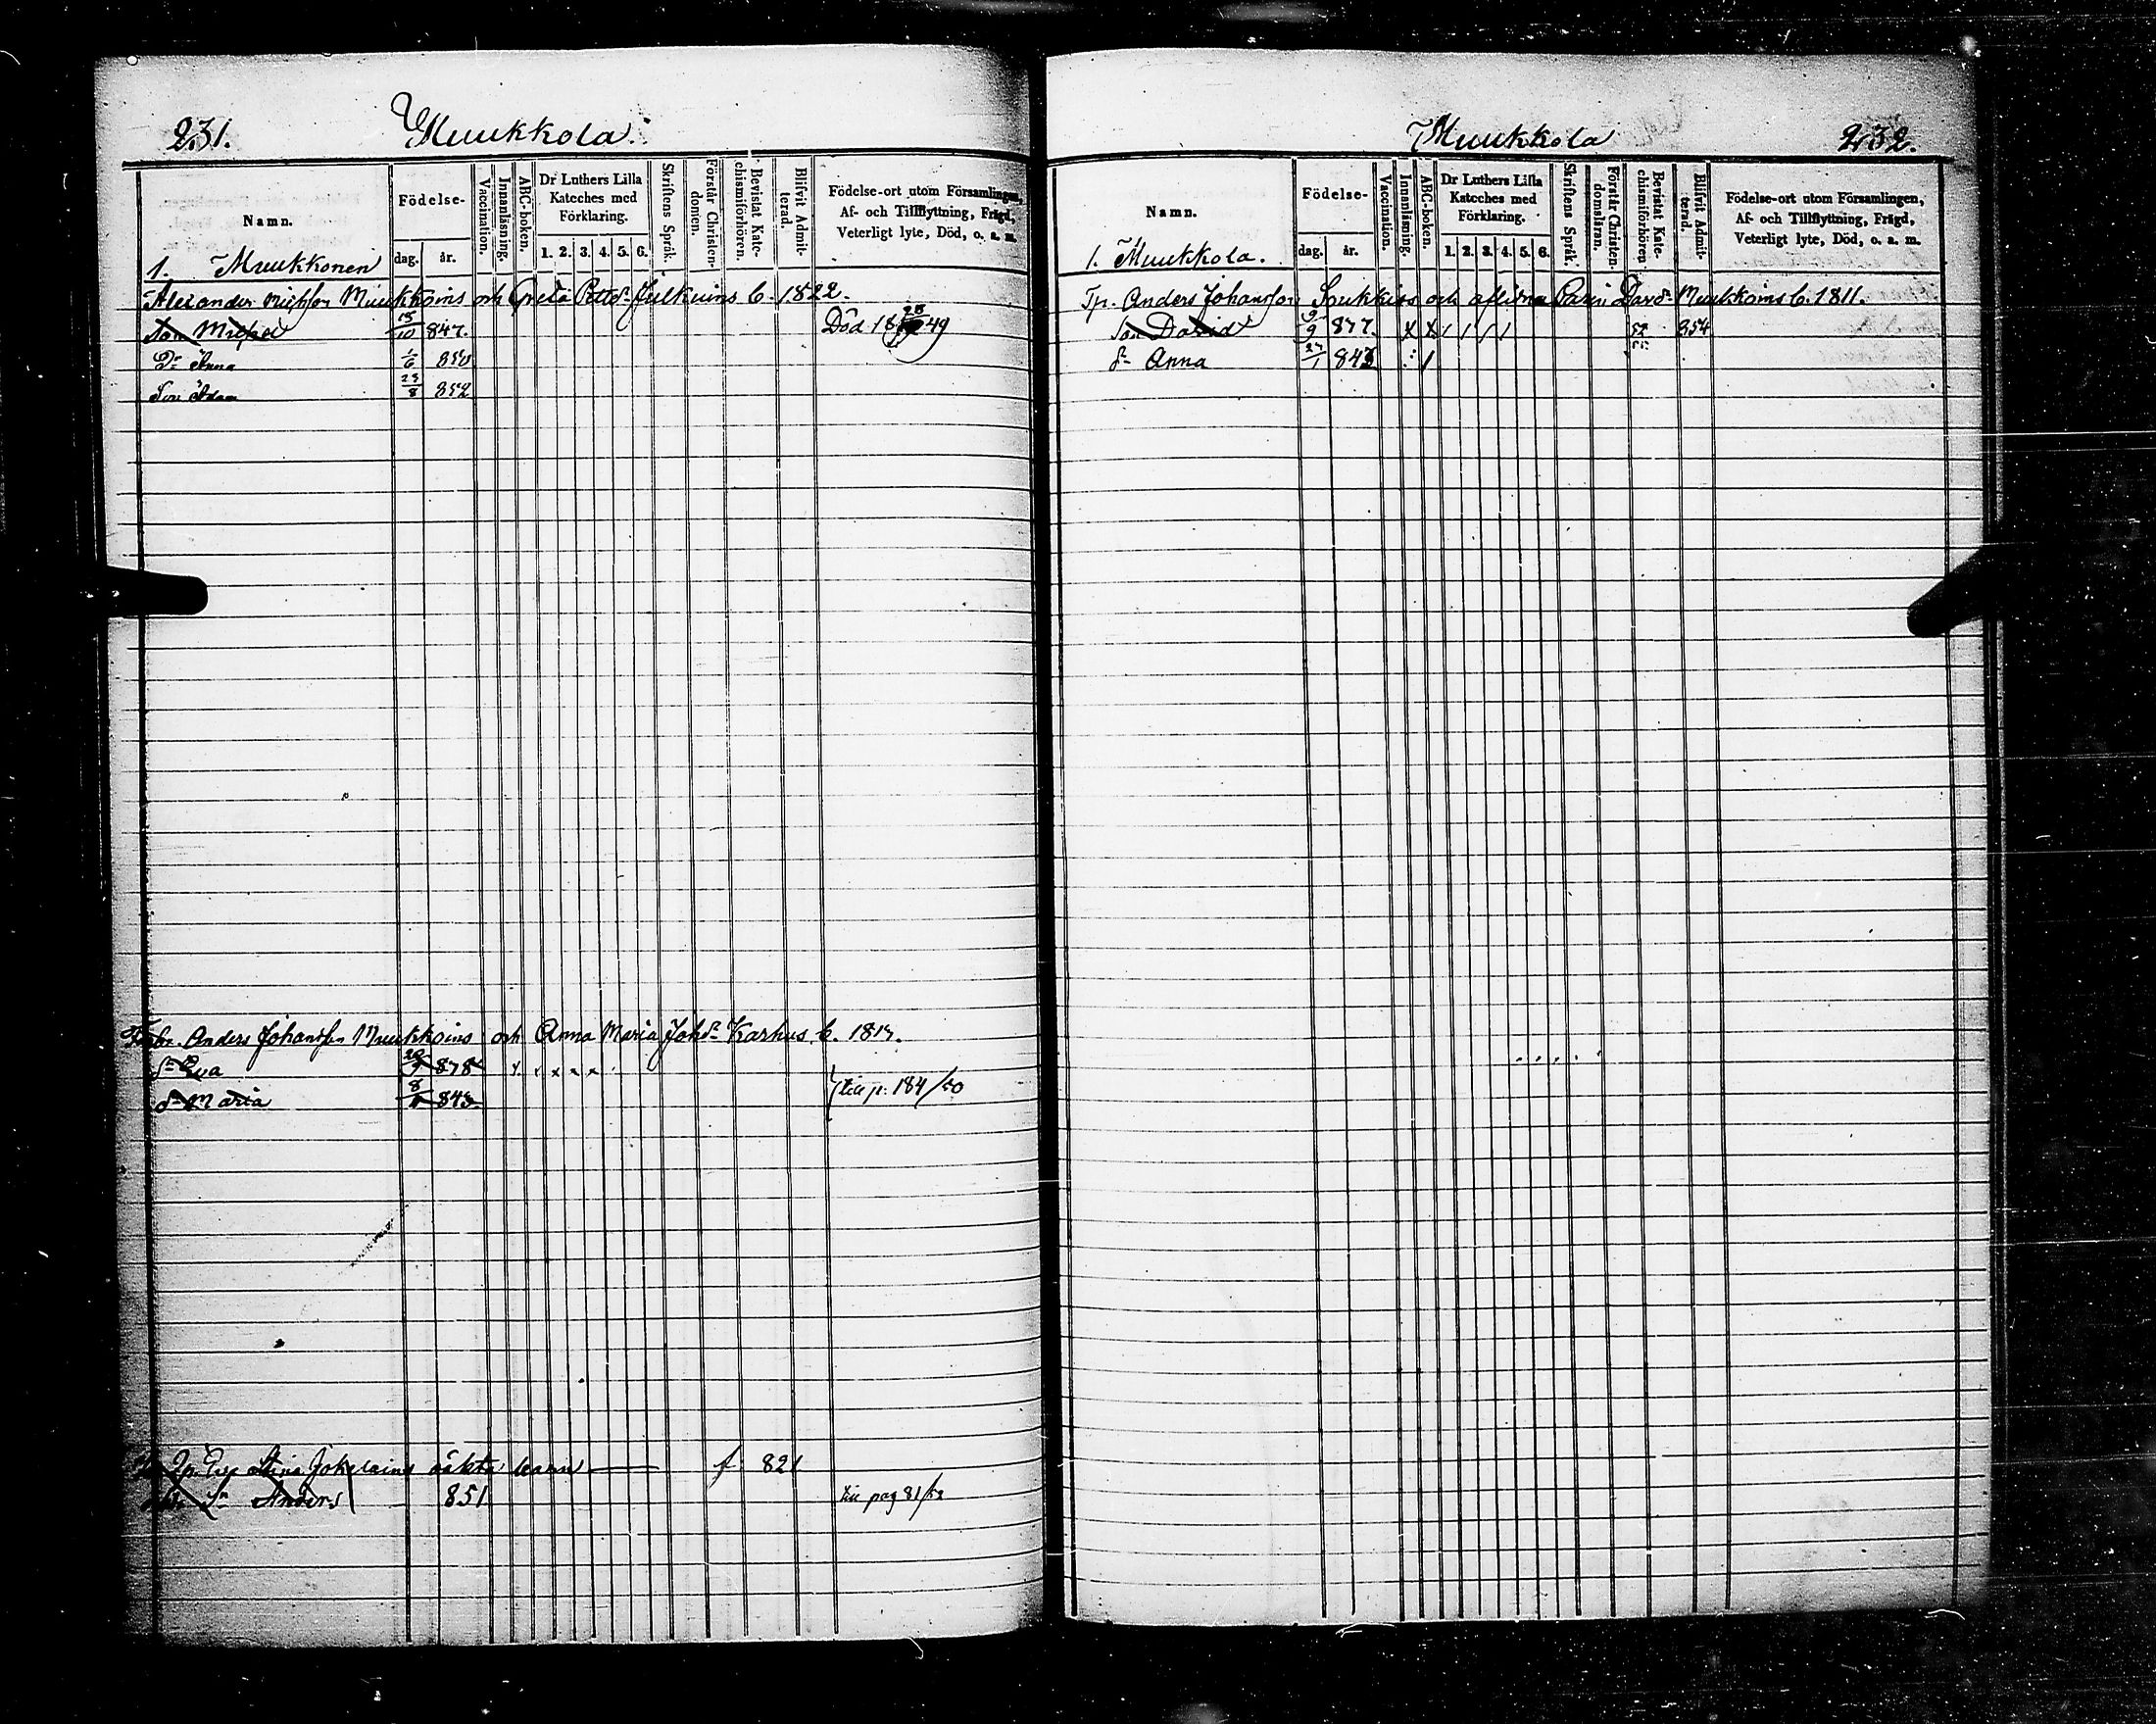 231.
Muukkola.
Namn.
Födelse-
dag.
år.
Vaccination.
Innanläsning.
ABC-boken.
Dr Luthers Lilla
Kateches med
Förklaring.
1. 2. 3. 4. 5. 6.
Skriftens Språk.
Förstår Christen-
domen.
Bevistat Kate-
chismiförhören.
Blifvit Admit-
terad.
Födelse-ort utom Församlingen,
Af- och Tillflyttning, Frägd,
Veterligt lyte, Död, o. a. m.
1. Muukkonen
Alexander Michsson Muukkoins och Greta Julkuins b. 1822.
Son Michel 18/10 847. Död 18 49
Dr Anna 1/6 850
Son Adam 23/8 852
Anders Johansson Muukkoins och Anna Maria Johdr Karhus b. 1817.
dr Eva 20/9 878
dr Maria 8/11 843. till p. 184/50
Stina Jokelains oäkta barn f. 821
Anders 851 till pag 81/52
Muukkola
232.
Namn.
Födelse-
dag.
år.
Vaccination.
Innanläsning.
ABC-boken.
Dr Luthers Lilla
Kateches med
Förklaring.
1. 2. 3. 4. 5. 6.
Skriftens Språk.
Förstår Christen-
domsläran.
Bevistat Kate-
chismiförhören
Blifvit Admit-
terad.
Födelse-ort utom Församlingen,
Af- och Tillflyttning, Frägd,
Veterligt lyte, Död, o. a. m.
1. Muukkola.
Tp. Anders Johansson och aflidna Carin Davdr Muukkoins b. 1811.
Son David 9/9 877. x x 1 1 1 1 854
dr Anna 27/1 843